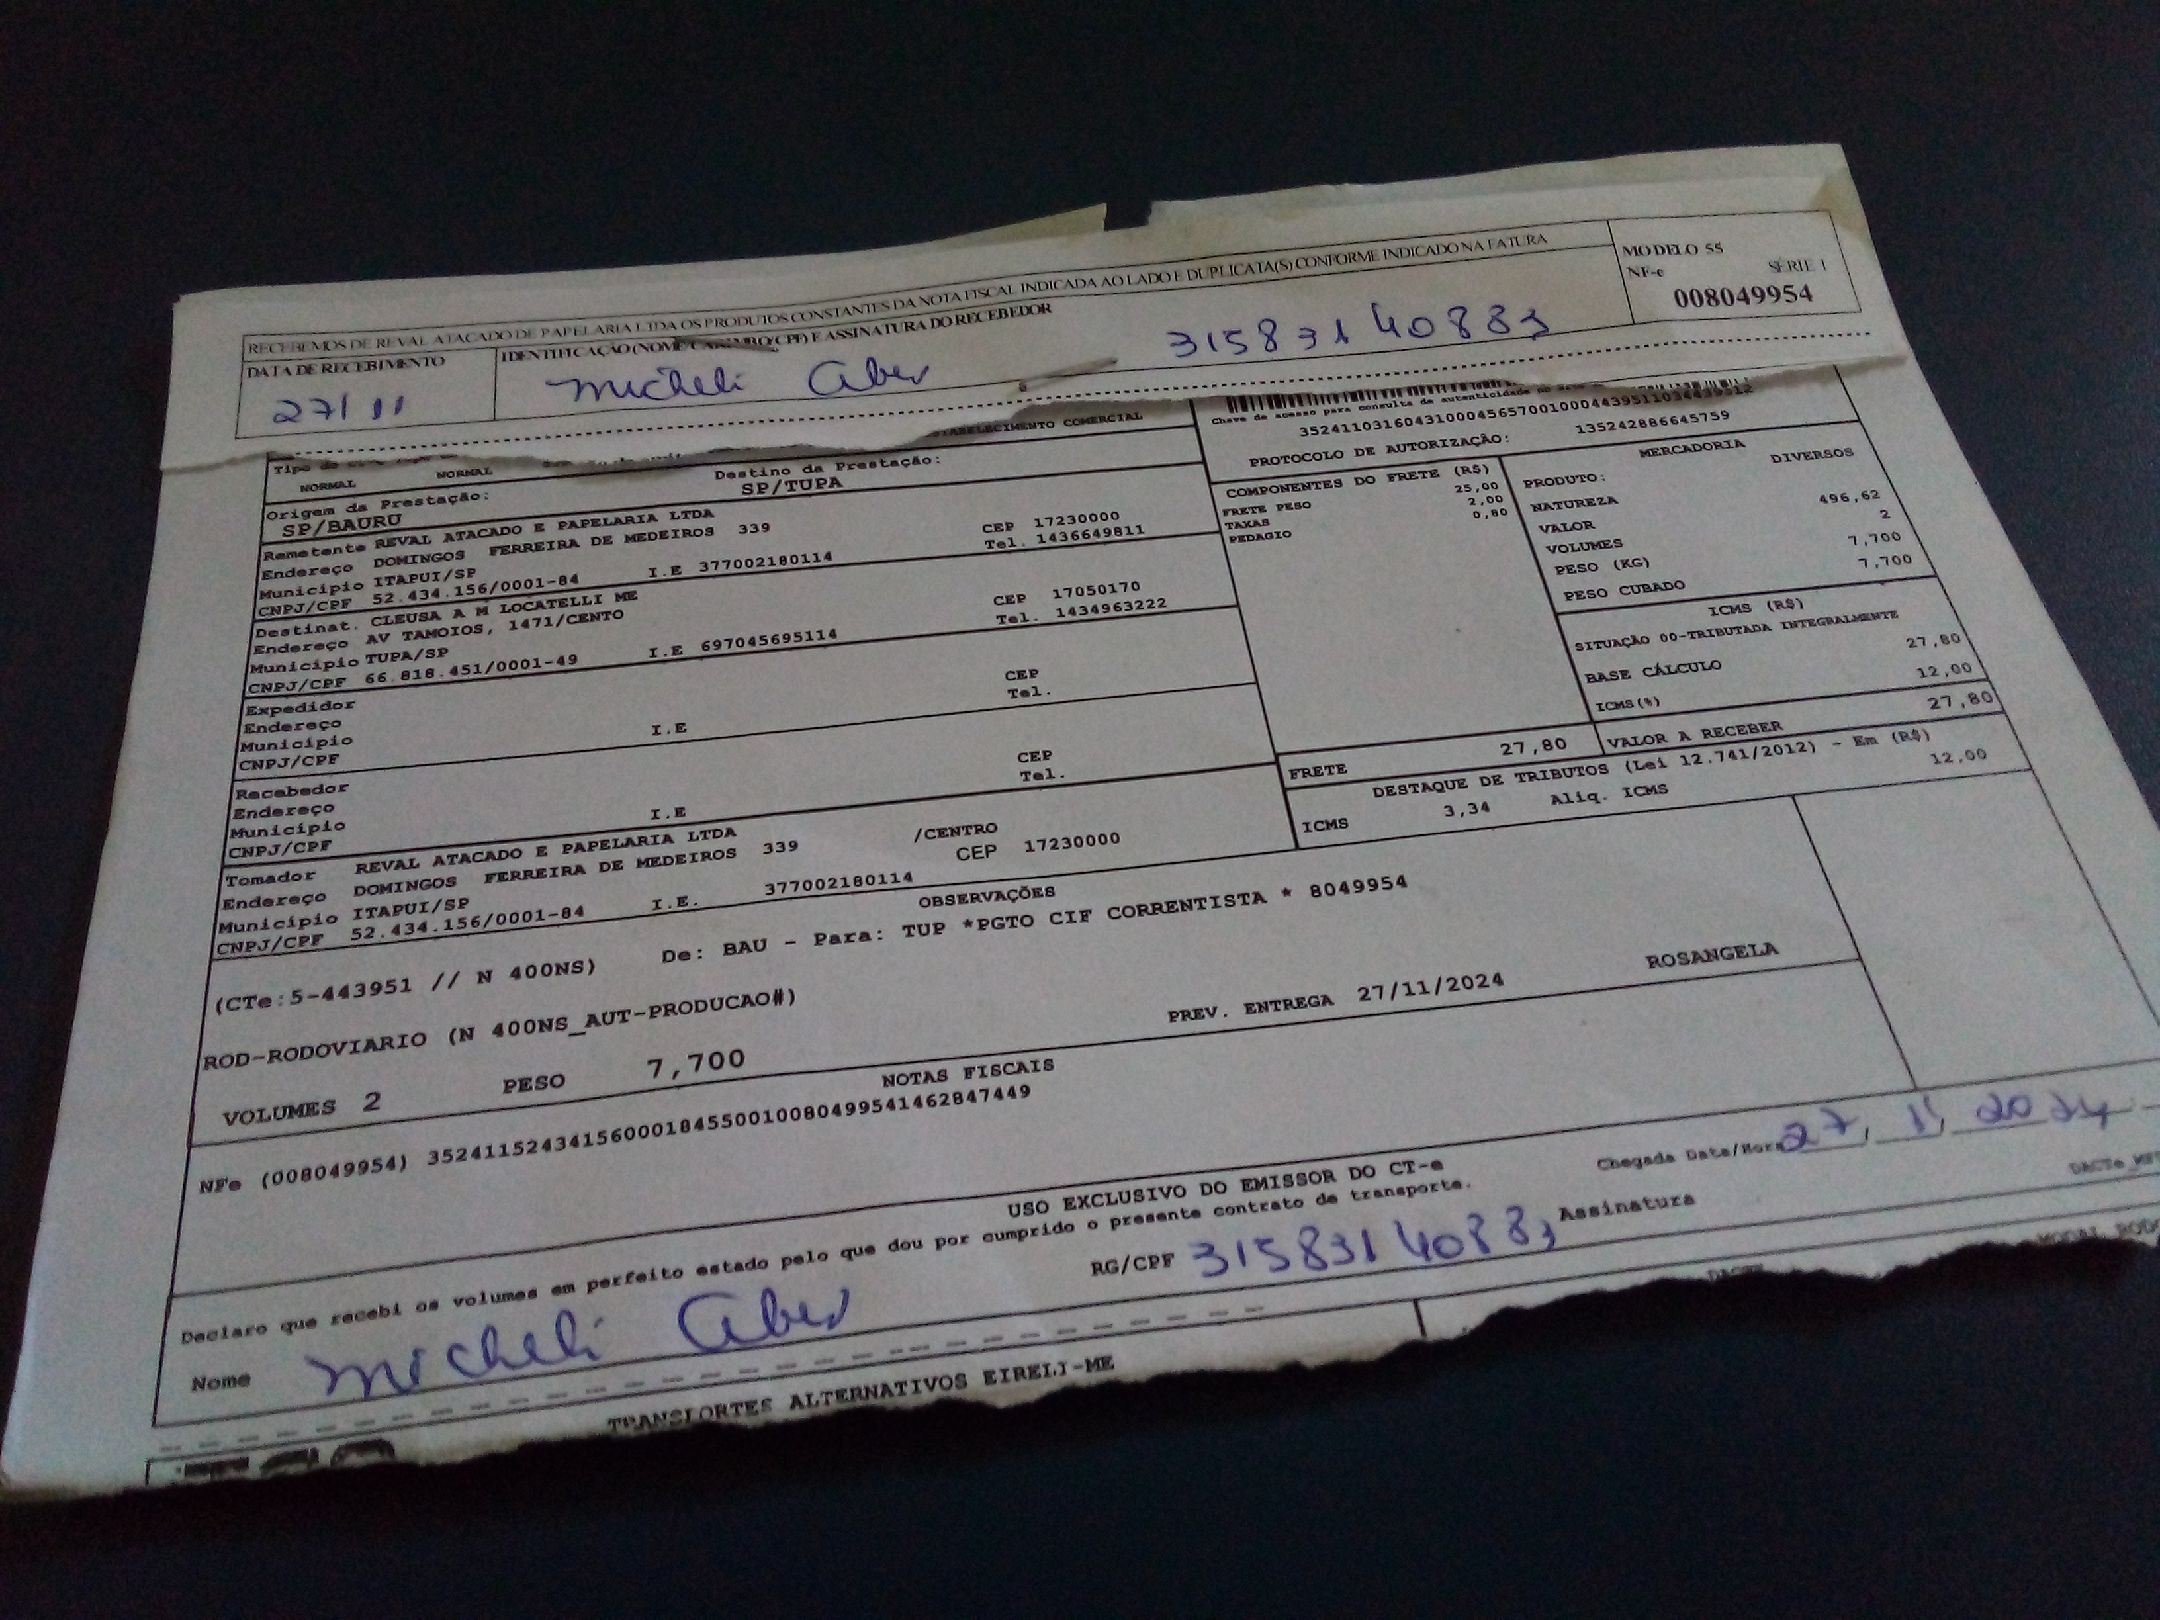 RECEBEMOS DE REVAL ATACADO DE PAPELARIA LTDA OS PRODUTOS CONSTANTES DA NOTA FISCAL INDICADA AO LADO E DUPLICATA(S) CONFORME INDICADO NA FATURA
MODELO 55
NF-e SÉRIE 1
008049954
DATA DE RECEBIMENTO
IDENTIFICAÇÃO (NOME, CPF) E ASSINATURA DO RECEBEDOR
27/11
Micheli 31583140883
ESTABELECIMENTO COMERCIAL
Chave de acesso para consulta de autenticidade no
35241103160431000456570010004439511034439312
PROTOCOLO DE AUTORIZAÇÃO: 135242886645759
Tipo
NORMAL NORMAL
Origem da Prestação: Destino da Prestação:
SP/BAURU SP/TUPA
Remetente REVAL ATACADO E PAPELARIA LTDA
Endereço DOMINGOS FERREIRA DE MEDEIROS 339 CEP 17230000
Município ITAPUI/SP Tel. 1436649811
CNPJ/CPF 52.434.156/0001-84 I.E 377002180114
Destinat. CLEUSA A M LOCATELLI ME
Endereço AV TAMOIOS, 1471/CENTO CEP 17050170
Município TUPA/SP Tel. 1434963222
CNPJ/CPF 66.818.451/0001-49 I.E 697045695114
Expedidor
Endereço CEP
Município Tel.
CNPJ/CPF I.E
Recebedor
Endereço CEP
Município Tel.
CNPJ/CPF I.E
Tomador REVAL ATACADO E PAPELARIA LTDA
Endereço DOMINGOS FERREIRA DE MEDEIROS 339 /CENTRO
Município ITAPUI/SP CEP 17230000
CNPJ/CPF 52.434.156/0001-84 I.E. 377002180114
COMPONENTES DO FRETE (R$)
FRETE PESO 25,00
TAXAS 2,00
PEDAGIO 0,80
MERCADORIA
PRODUTO: DIVERSOS
NATUREZA
VALOR 496,62
VOLUMES 2
PESO (KG) 7,700
PESO CUBADO 7,700
ICMS (R$)
SITUAÇÃO 00-TRIBUTADA INTEGRALMENTE
BASE CÁLCULO 27,80
ICMS(%) 12,00
FRETE 27,80
VALOR A RECEBER 27,80
DESTAQUE DE TRIBUTOS (Lei 12.741/2012) - Em (R$)
ICMS 3,34 Aliq. ICMS 12,00
OBSERVAÇÕES
(CTe:5-443951 // N 400NS) De: BAU - Para: TUP *PGTO CIF CORRENTISTA * 8049954
ROD-RODOVIARIO (N 400NS_AUT-PRODUCAO#)
PREV. ENTREGA 27/11/2024 ROSANGELA
VOLUMES 2 PESO 7,700
NOTAS FISCAIS
NFe (008049954) 35241152434156000184550010080499541462847449
USO EXCLUSIVO DO EMISSOR DO CT-e
Declaro que recebi os volumes em perfeito estado pelo que dou por cumprido o presente contrato de transporte.
Chegada Data/Hora 27/11/2024
Nome Micheli RG/CPF 31583140883 Assinatura
TRANSPORTES ALTERNATIVOS EIRELI-ME